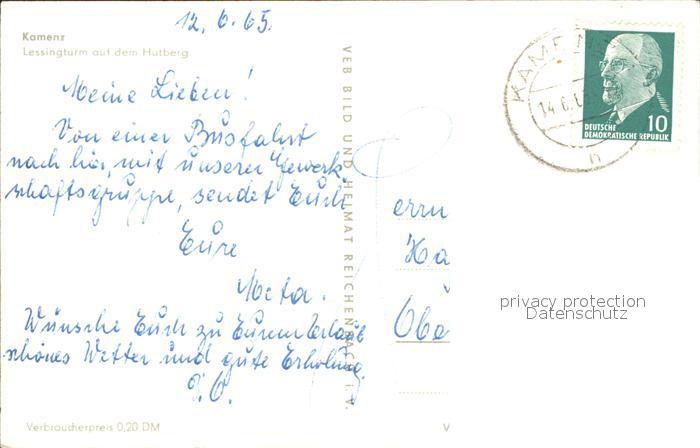 12. 6. 65.
Kamenz
Lessingturm auf dem Hutberg
Meine Lieben!
Von einer Busfahrt
nach hier, mit unserer Gewerk-
schaftsgruppe, sendet Euch
Eure
Meta.
Wünsche Euch zu Eurem Urlaub
schönes Wetter und gute Erholung.
D.O.
Verbraucherpreis 0,20 DM
VEB BILD UND HEIMAT REICHENBACH I. V.
KAMENZ
14.6.6
h
DEUTSCHE
DEMOKRATISCHE REPUBLIK
10
errn
Ha
Obe
V
privacy protection
Datenschutz